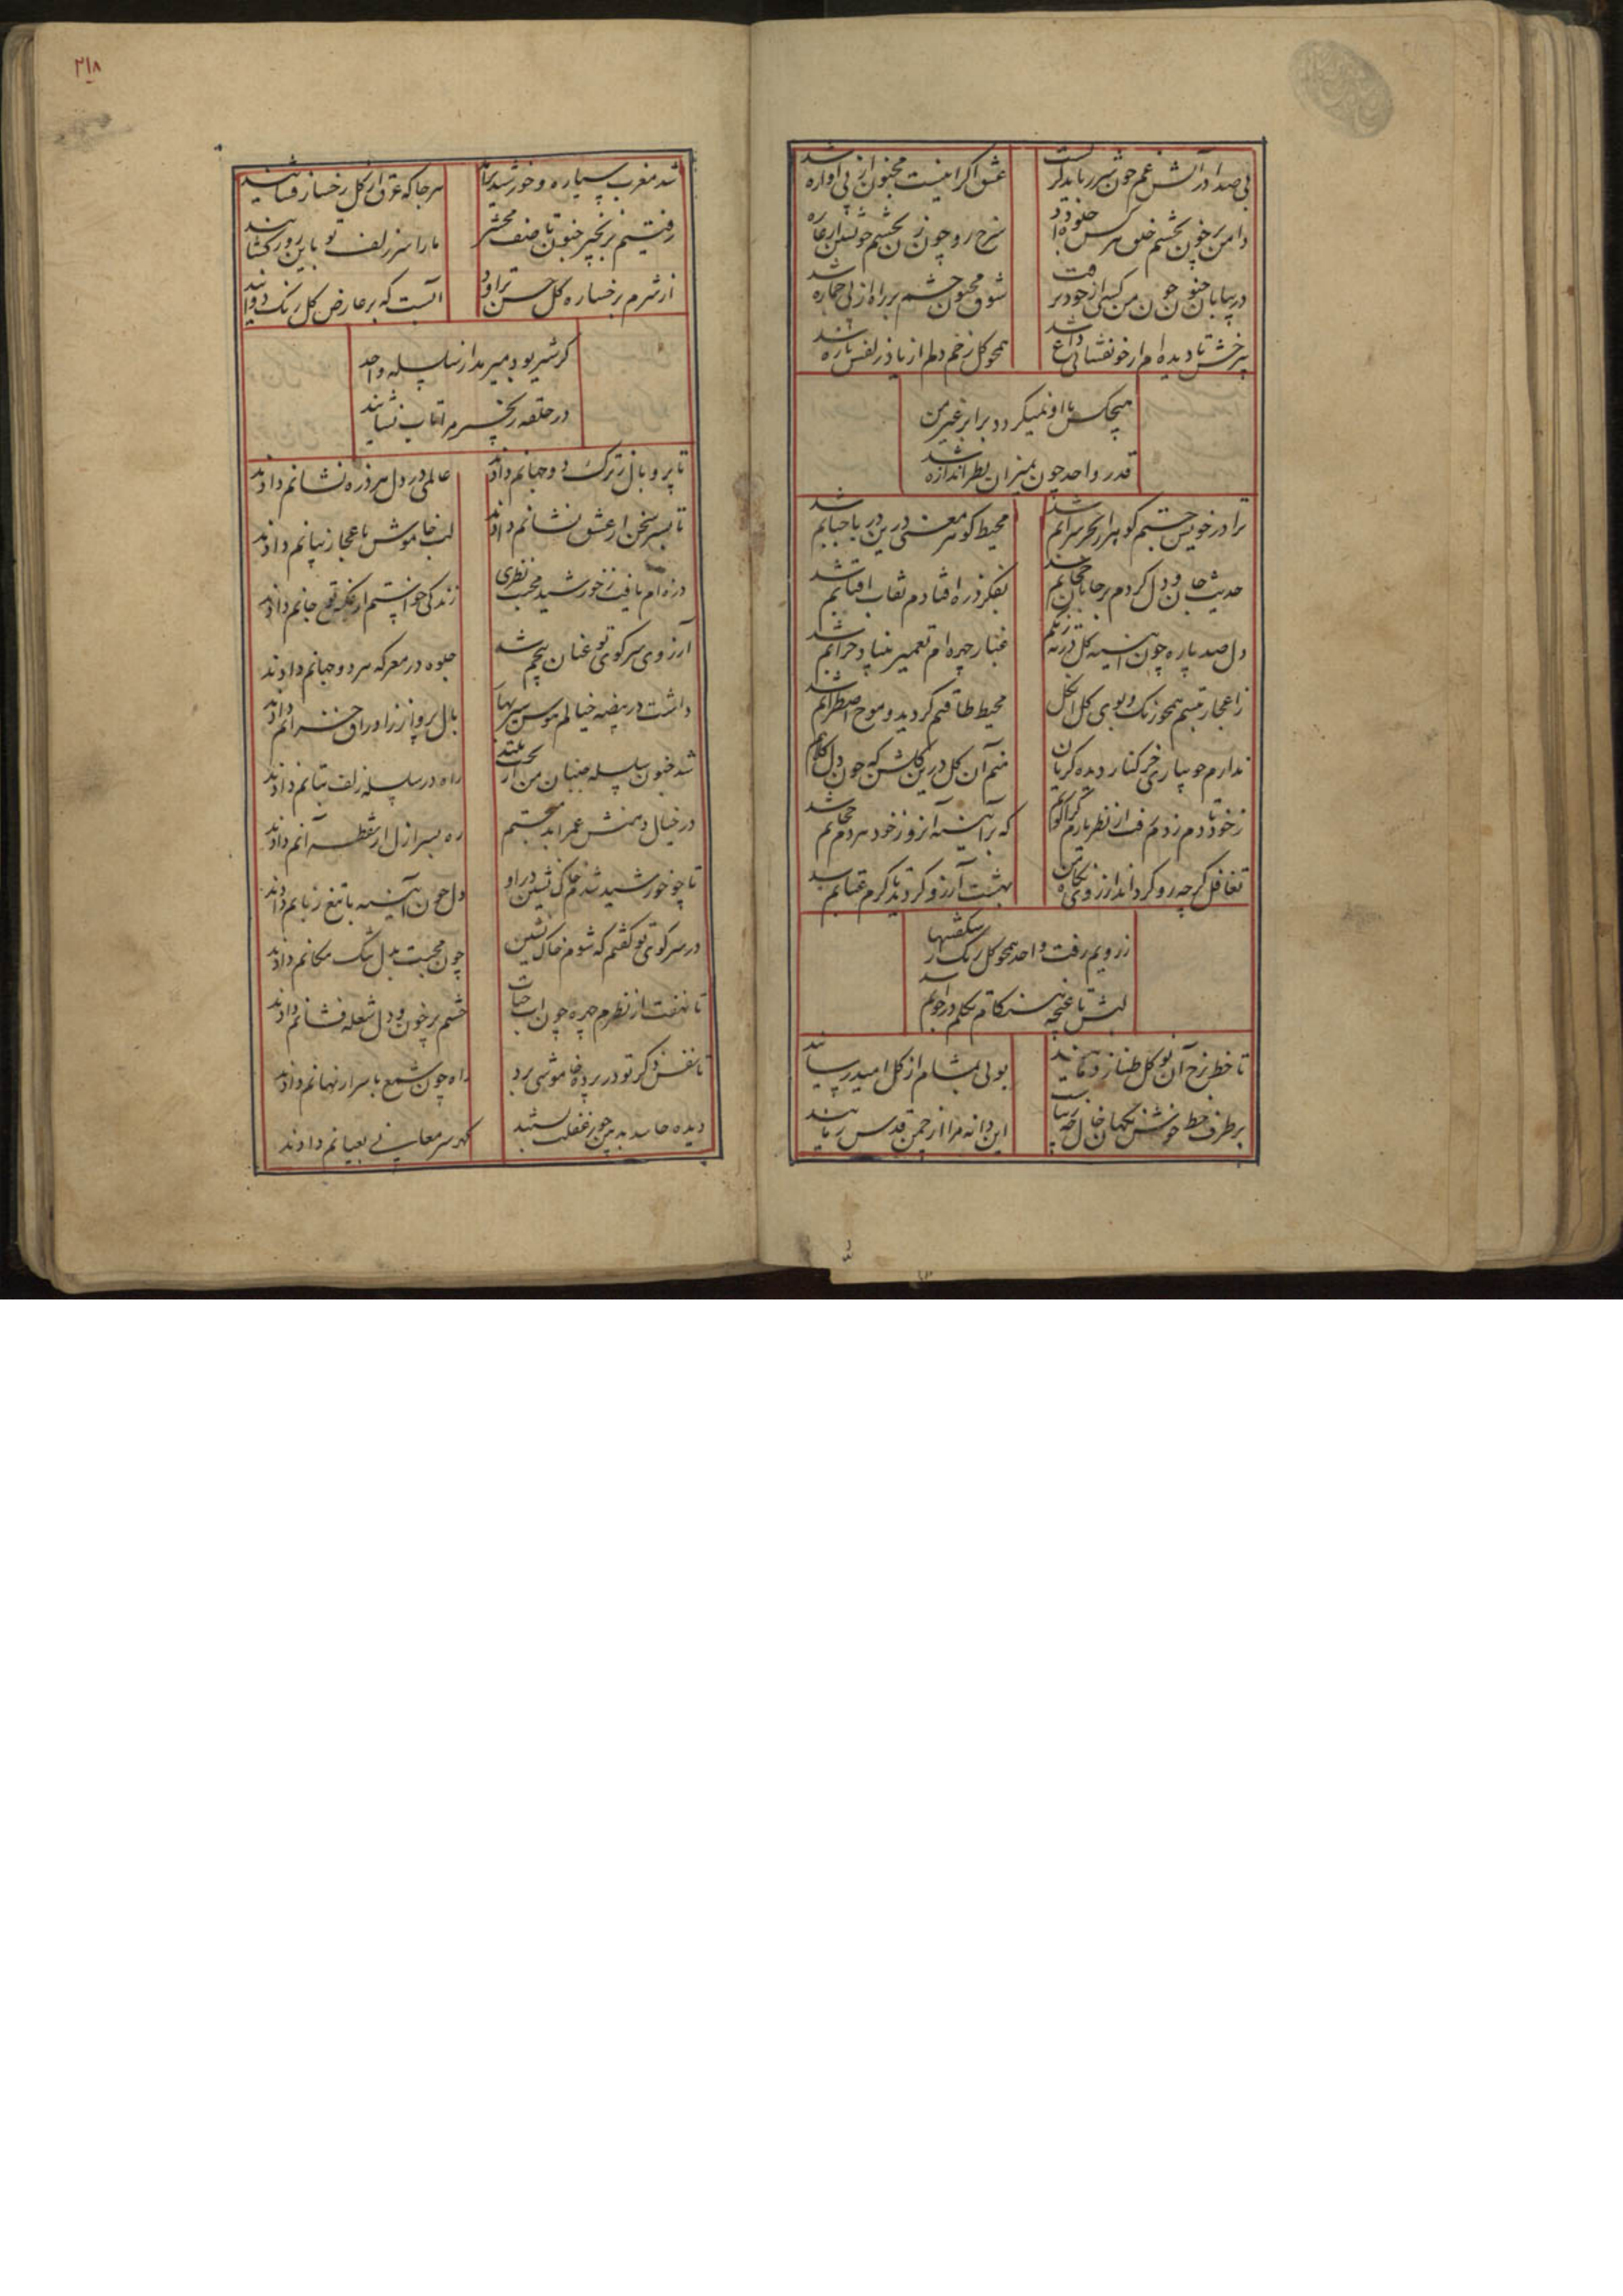 بی صدا در آتش غم چون شرر باید گریست
عشق اگر اینست مجنون از پی آواره شد
دامن پر خون بچشم خلق هر کس جلوه داد
سرخ رو چون زن بچشم خویشتن
در بیابان جنون چون من کسی از خود نرفت
شوق مجنون چشم بر راه از پی جمازه شد
تا دیده ام از خونفشانی داغ شد
همچو گل زخم دلم از یاد زلفش تازه شد
هیچکس با او نمیگردد برابر غیر من
قدر واحد چون بمیزان نظر اندازه شد
ترا در خویش جستم گوهر از بحر سرابم شد
محیط گوهر معنی درین دریا حبابم شد
حدیث جان و دل کردم بر جانان حجابم شد
بفکر ذره افتادم نقاب آفتابم شد
دل صد پاره چون آیینه گل در ته زنگم
غبار چهره ام تعمیر بنیاد خرابم شد
ز اعجاز تبسم همچو رنگ و بوی گل از گل
محیط طاقتم گردید و موج اضطرابم شد
ندارم جویباری جز کنار دیده گریان
منم آن گل درین گلشن که خون دل گلابم شد
ز خود تا دم زدم رفت از نظر یارم
که بر آیینه آنروز خود هر دم حجابم شد
تغافل گرچه رو گرداند از روی نگاه من
بهشت آرزو گردید تا گرم عتابم شد
ز رویم رفت واحد همچو گل رنگ از شکفتنها
لبش تا غنچه سان تکلم در جوابم شد
تا خط ز رخ آن نوگل طناز دمانید
بوئی بمشام از گل امید رسانید
بر طرف خط خوش نگهان خال
این دانه مرا از چمن قدس رمانید
شد مغرب سیاره و خورشید نماید
هر جا که عرق از گل رخسار فشانید
رفتیم بزنجیر جنون تا صف محشر
ما را سر زلف تو باین روز کشانید
از شرم برخساره گل حسن تراود
آنست که بر عارض گل رنگ دوانید
گر شیر بود میرمد از سلسله واحد
در حلقه زنجیر مرا تاب نشانید
تا پر و بال ز ترک دو جهانم دادند
عالمی در دل هر ذره نشانم دادند
تا بسر سخن از عشق نشانم دادند
لب خاموش باعجاز بیانم دادند
ذره ام یافت ز خورشید محبت نظری
زندگی خواستم از جانم دادند
آرزوی سر کوی تو عنان پیچم شد
جلوه در معرکه هر دو جهانم دادند
داشت در بیضه خیالم هوس سیر بهار
بال پرواز ز اوراق خزانم دادند
شد جنون سلسله جنبان من از بخت بلند
راه در سلسله زلف بتانم دادند
در خیال دهنش عمر ابد میجستم
ره بسر ازل از نقطه آنم دادند
تا چو خورشید شدم خاک نشین در او
دل چون آیینه با تیغ زبانم دادند
در سر کوی تو گفتم که شوم خاک نشین
چون محبت بدل تنگ مکانم دادند
تا نهفت از نظرم چهره چون آب حیات
چشم پر خون و دل شعله فشانم دادند
تا نفس ذکر تو در پرده خاموشی برد
راه چون شمع باسرار نهانم دادند
دیده حاسد بدبین چو ز غفلت بستند
گهر سر معانی بعیانم دادند
۲۱۸